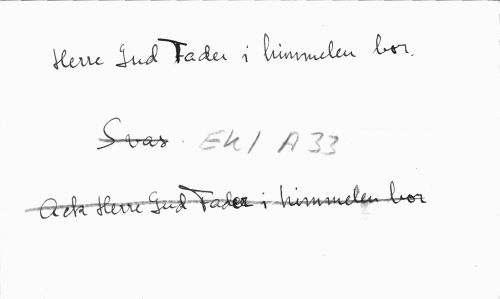 Herre Gud Fader i himmelen bor.
Svar. EK1 A 33
Ack Herre Gud Fader i himmelen bor